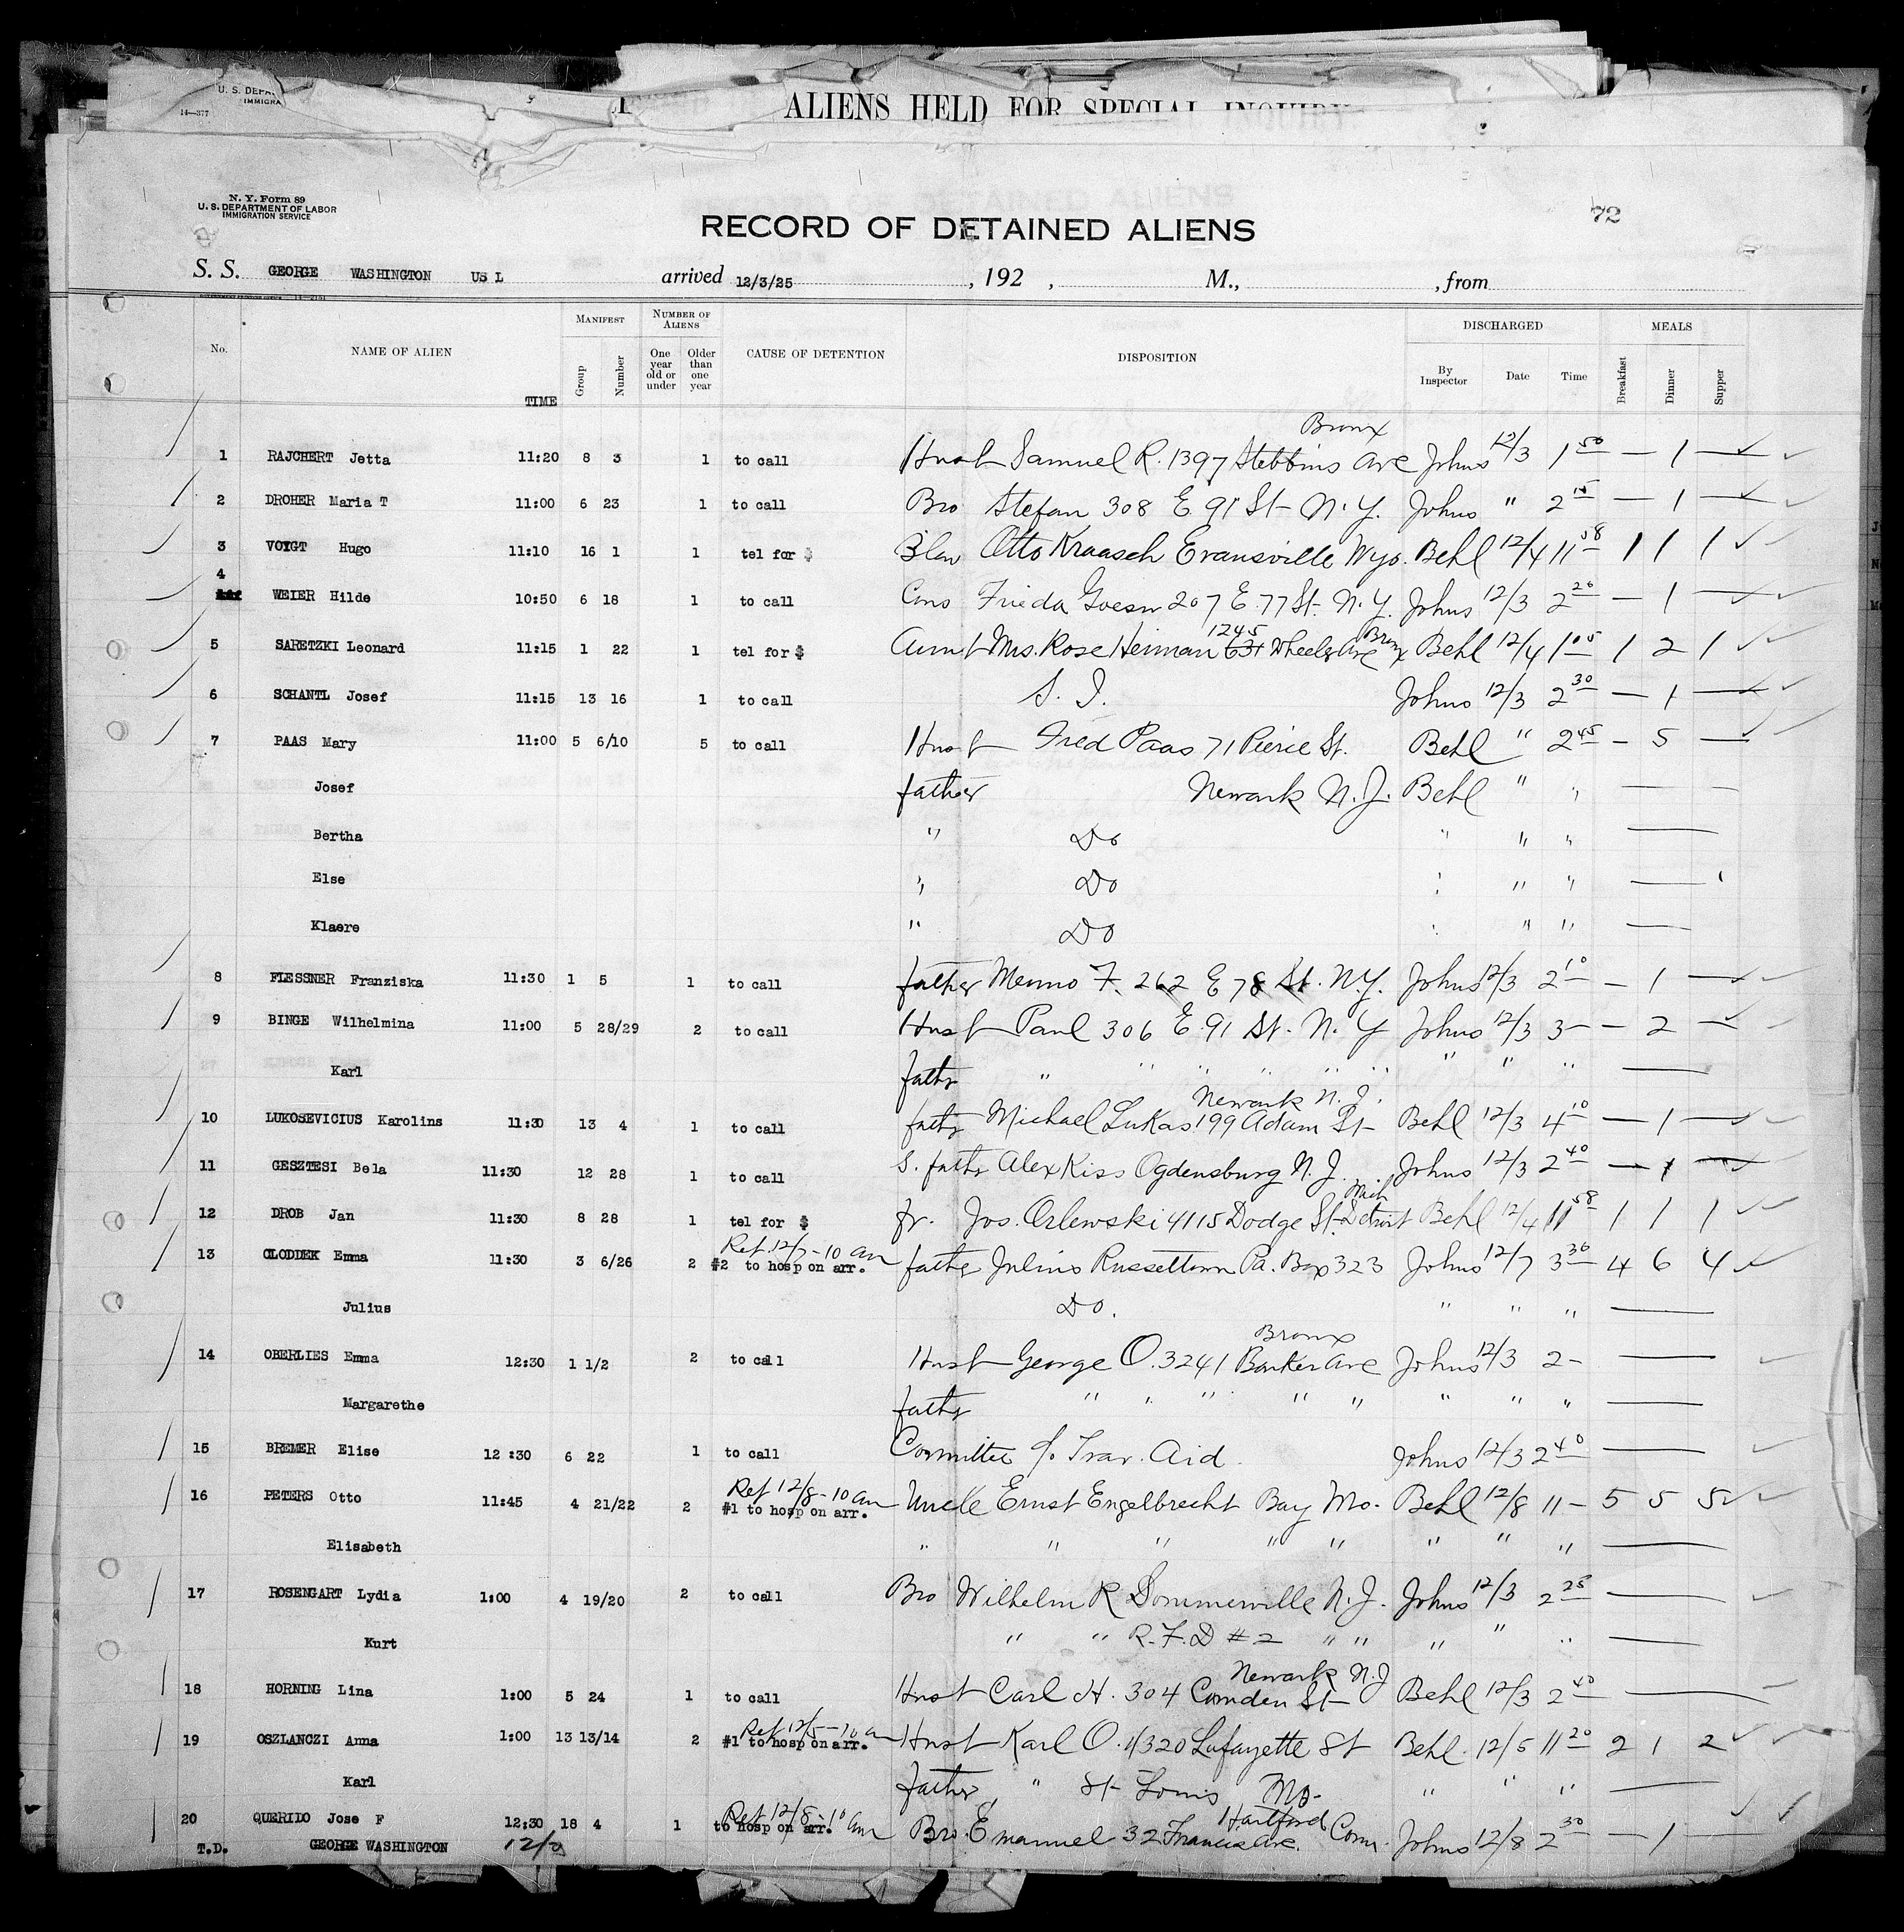 U. S. DEPA
IMMIGRA
14—377
ALIENS HELD FOR SPECIAL INQUIRY
N. Y. Form 89
U. S. DEPARTMENT OF LABOR
IMMIGRATION SERVICE
72
RECORD OF DETAINED ALIENS
S. S. GEORGE WASHINGTON US L arrived 12/3/25 , 192 , M., , from
No. NAME OF ALIEN TIME MANIFEST Group Number NUMBER OF ALIENS One year old or under Older than one year CAUSE OF DETENTION DISPOSITION DISCHARGED By Inspector Date Time MEALS Breakfast Dinner Supper
Bronx
1 RAJCHERT Jetta 11:20 8 3 1 to call Husb Samuel R. 1397 Stebbins Ave Johns 12/3 1 50 — 1 —
2 DROHER Maria T 11:00 6 23 1 to call Bro Stefan 308 E 91 St N.Y. Johns " 2 15 — 1 —
3 VOIGT Hugo 11:10 16 1 1 tel for $ Blaw Otto Kraasch Evansville Wyo. Behl 12/4 11 58 1 1 1
4 WEIER Hilde 10:50 6 18 1 to call Cous Frieda 207 E. 77 St. N.Y. Johns 12/3 2 20 — 1 —
1245 Bronx
5 SARETZKI Leonard 11:15 1 22 1 tel for $ Aunt Mrs. Rose Heiman 631 Wheeler Ave Behl 12/4 1 05 1 2 1
6 SCHANTL Josef 11:15 13 16 1 to call S. I. Johns 12/3 2 30 — 1 —
7 PAAS Mary 11:00 5 6/10 5 to call Husb Fred Paas 71 Pierce St. Behl " 2 45 — 5 —
Josef father Newark N.J. Behl " " — —
Bertha " Do " " " —
Else " Do " " " —
Klaere " Do " " " —
8 FLESSNER Franziska 11:30 1 5 1 to call father Menno F. 262 E 78 St. N.Y. Johns 12/3 2 10 — 1 —
9 BINGE Wilhelmina 11:00 5 28/29 2 to call Husb Paul 306 E. 91 St. N.Y Johns 12/3 3— — 2 —
Karl fathr " " " " " " " " " —
Newark N.J.
10 LUKOSEVICIUS Karolins 11:30 13 4 1 to call fathr Michael Lukas 199 Adam St Behl 12/3 4 10 — 1 —
11 GESZTESI Bela 11:30 12 28 1 to call S. fathr Alex Kiss Ogdensburg N.J. Johns 12/3 2 40 — 1 —
Mich
12 DROB Jan 11:30 8 28 1 tel for $ fr. Jos. Orlewski 4115 Dodge St. Detroit Behl 12/4 11 58 1 1 1
Ret 12/7 - 10 am
13 OLODDEK Emma 11:30 3 6/26 2 #2 to hosp on arr. father Julius Russelltown Pa. Box 323 Johns 12/7 3 30 4 6 4
Julius Do. " " " —
Bronx
14 OBERLIES Emma 12:30 1 1/2 2 to call Husb George O. 3241 Barker Ave Johns 12/3 2— —
Margarethe fathr " " " " " " " " —
15 BREMER Elise 12:30 6 22 1 to call Committee % Trav. Aid Johns 12/3 2 40 —
Ret 12/8 - 10 am
16 PETERS Otto 11:45 4 21/22 2 #1 to hosp on arr. Uncle Ernst Engelbrecht Bay Mo. Behl 12/8 11— 5 5 5
Elisabeth " " " " " " " " —
17 ROSENGART Lydia 1:00 4 19/20 2 to call Bro Wilhelm R Sommerville N.J. Johns 12/3 2 25 —
Kurt " " R.F.D #2 " " " " " —
Newark N.J
18 HORNING Lina 1:00 5 24 1 to call Husb Carl H. 304 Camden St Behl 12/3 2 40 —
Ret 12/5 - 10 a
19 OSZLANCZI Anna 1:00 13 13/14 2 #1 to hosp on arr. Husb Karl O. 1320 Lafayette St Behl. 12/5 11 20 2 1 2
Karl father " St Louis Mo. " " " —
Ret 12/8 - 10 am Hartford
20 QUERIDO Jose F 12:30 18 4 1 to hosp on arr. Bro. Emanuel 32 Francis Ave. Conn. Johns 12/8 2 30 — 1 —
T.D. GEORGE WASHINGTON